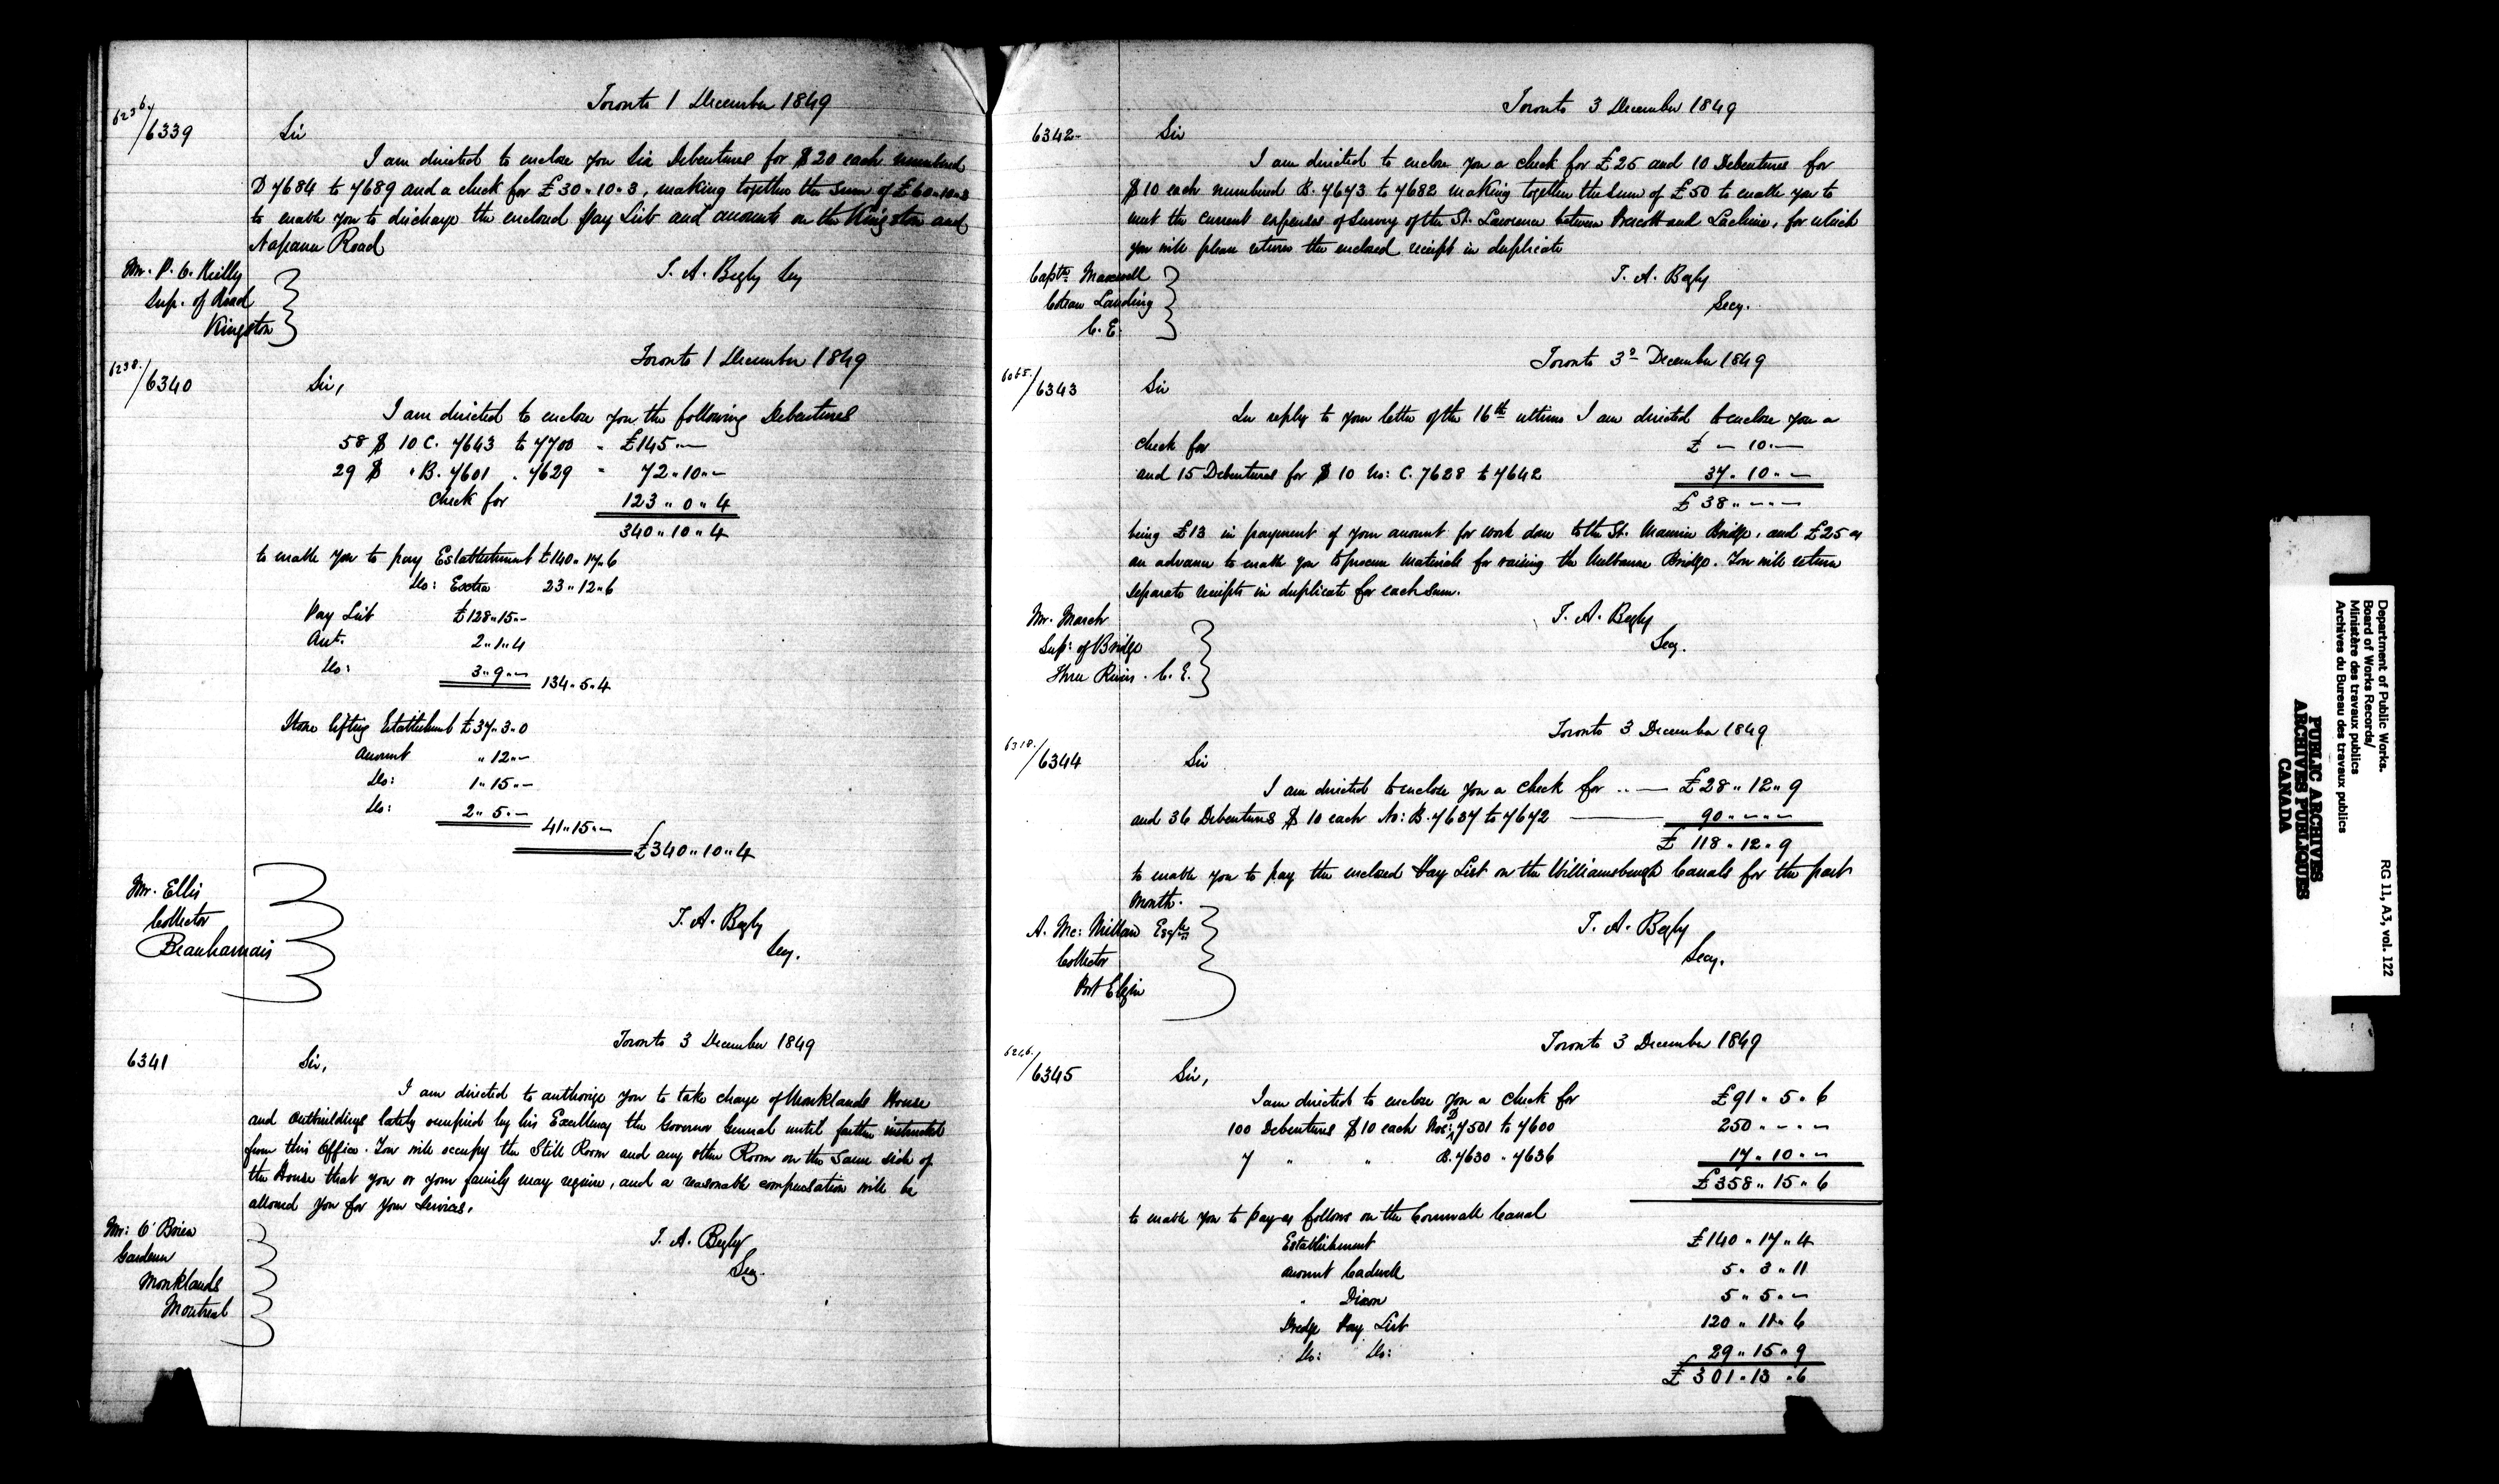 Toronto 1 December 1849
6236/6339
Sir
I am directed to enclose you Six Debentures for $20 each numbered
D 7684 to 7689 and a check for £30..10..3, making together the sum of £60..10..3
to enable you to discharge the enclosed Pay List and amounts on the Kingston and
Napanee Road
T. A. Begly Secy
Mr. P. C. Reilly
Sup. of Road
Kingston
Toronto 1 December 1849
6238./6340
Sir,
I am directed to enclose you the following Debentures
58 $ 10 C. 7643 to 7700 - £145..—
29 $ " B. 7601 . 7629 " 72..10..—
Check for 123..0..4
340..10..4
to enable you to pay Establishment £140..17..6
Do: Extra 23..12..6
Pay List £128..15..—
Aut. 2..1..4
Do: 3..9..—
134..5..4
Stone lifting Establishmt £37..3..0
Amount "12..—
Do: 1..15..—
Do: 2..5..—
41..15..—
£340..10..4
Mr. Ellis
Collector
Beauharnais
T. A. Begly
Secy.
Toronto 3 December 1849
6341
Sir,
I am directed to authorize you to take charge of Monklands House
and outbuildings lately occupied by his Excellency the Governor General until farther instructed
from this Office. You will occupy the Still Room and any other Room on the same side of
the House that you or your family may require, and a reasonable compensation will be
allowed you for your Services.
T. A. Begly
Secy.
Mr: O'Brien
Gardener
Monklands
Montreal
Toronto 3 December 1849
6342-
Sir
I am directed to enclose you a check for £25 and 10 Debentures for
$10 each numbered B. 7673 to 7682 making together the sum of £50 to enable you to
meet the current expenses of Survey of the St. Lawrence between Prescott and Lachine, for which
you will please return the enclosed receipt in duplicate
T. A. Begly
Secy.
Captn. Maxwell
Coteau Landing
C. E.
Toronto 3d December 1849
6065./6343
Sir
In reply to your letter of the 16th ultimo I am directed to enclose you a
check for £ — 10..—
and 15 Debentures for $10 No: C. 7628 to 7642 37..10..—
£38..—..—
being £13 in payment of your amount for work done to the St. Maurice Bridge, and £25 as
an advance to enable you to procure Materials for raising the Melbourne Bridge. You will return
separate receipts in duplicate for each sum.
T. A. Begly
Secy.
Mr. March
Supt. of Bridge
Three Rivers. C. E.
Toronto 3 December 1849
6318./6344
Sir
I am directed to enclose you a check for ..— £28..12..9
and 36 Debentures $10 each No: B. 7637 to 7672 — 90..—..—
£118..12..9
to enable you to pay the enclosed Pay List on the Williamsburgh Canals for the past
month.
T. A. Begly
Secy.
A. Mc: Millan Esqre
Collector
Port Elgin
Toronto 3 December 1849
/6345
Sir,
I am directed to enclose you a check for £91..5..6
100 Debentures $10 each Nos: D 7501 to 7600 250..—..—
7 " " B. 7630 " 7636 17..10..—
£358..15..6
to enable you to pay as follows on the Cornwall Canal
Establishment £140..17..4
Amount Cadwell 5..3..11
" Dixon 5..5..—
Dredge Pay List 120..11..6
Do: Do: 29..15..9
£301..13..6
Department of Public Works.
Board of Works Records/
Ministère des travaux publics
Archives du Bureau des travaux publics
RG 11, A3, vol. 122
PUBLIC ARCHIVES
ARCHIVES PUBLIQUES
CANADA